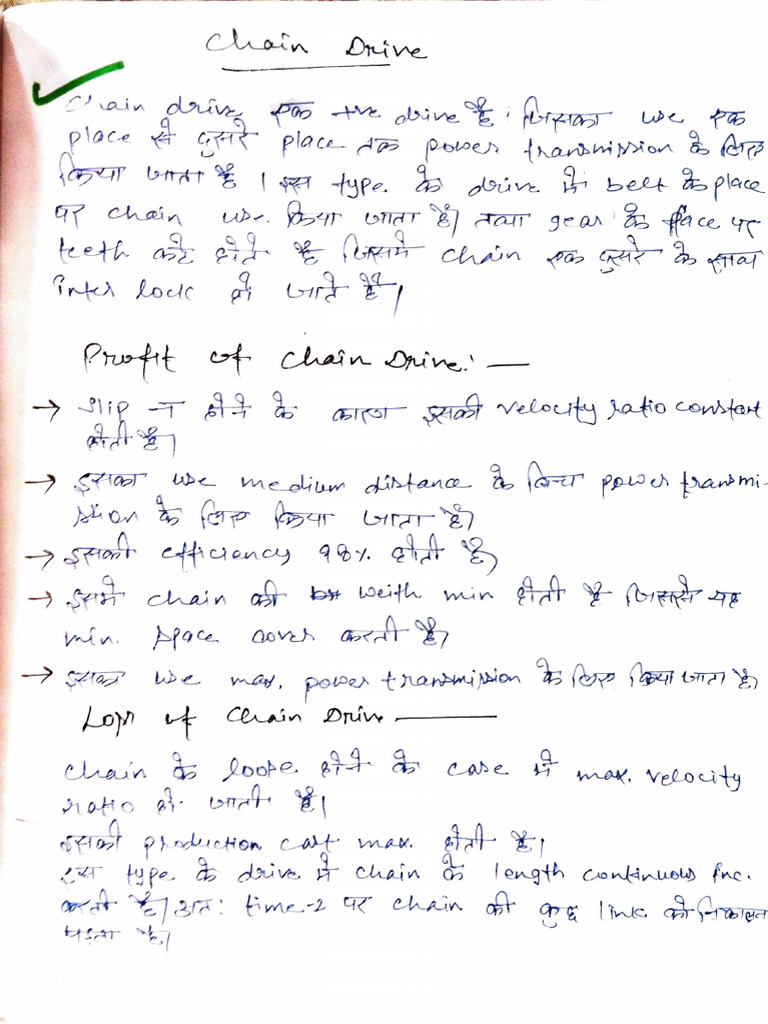 Chain Drive
Chain drive एक +ve drive है। जिसका use एक
place से दुसरे place तक power transmission के लिए
किया जाता है। इस type. के drive में belt के place
पर chain use. किया जाता है। तथा gear के place पर
teeth कटे होते है जिसमे chain एक दुसरे के साथ
inter lock हो जाते है।
Profit of Chain Drive:—
→ slip न होने के कारण इसकी velocity ratio constant
होती है।
→ इसका use medium distance के बिच power transmi-
ssion के लिए किया जाता है।
→ इसकी efficiency 98% होती है।
→ इसमे chain की weith min होती है जिससे यह
min. space cover करती है।
→ इसका use max. power transmission के लिए किया जाता है।
Loss of Chain Drive —
chain के loose होने के case में max. velocity
ratio हो जाती है।
इसकी production cast max. होती है।
इस type के drive में chain के length continuous inc.
करती है। अत: time-2 पर chain की कुछ link को निकालना
पड़ता है।